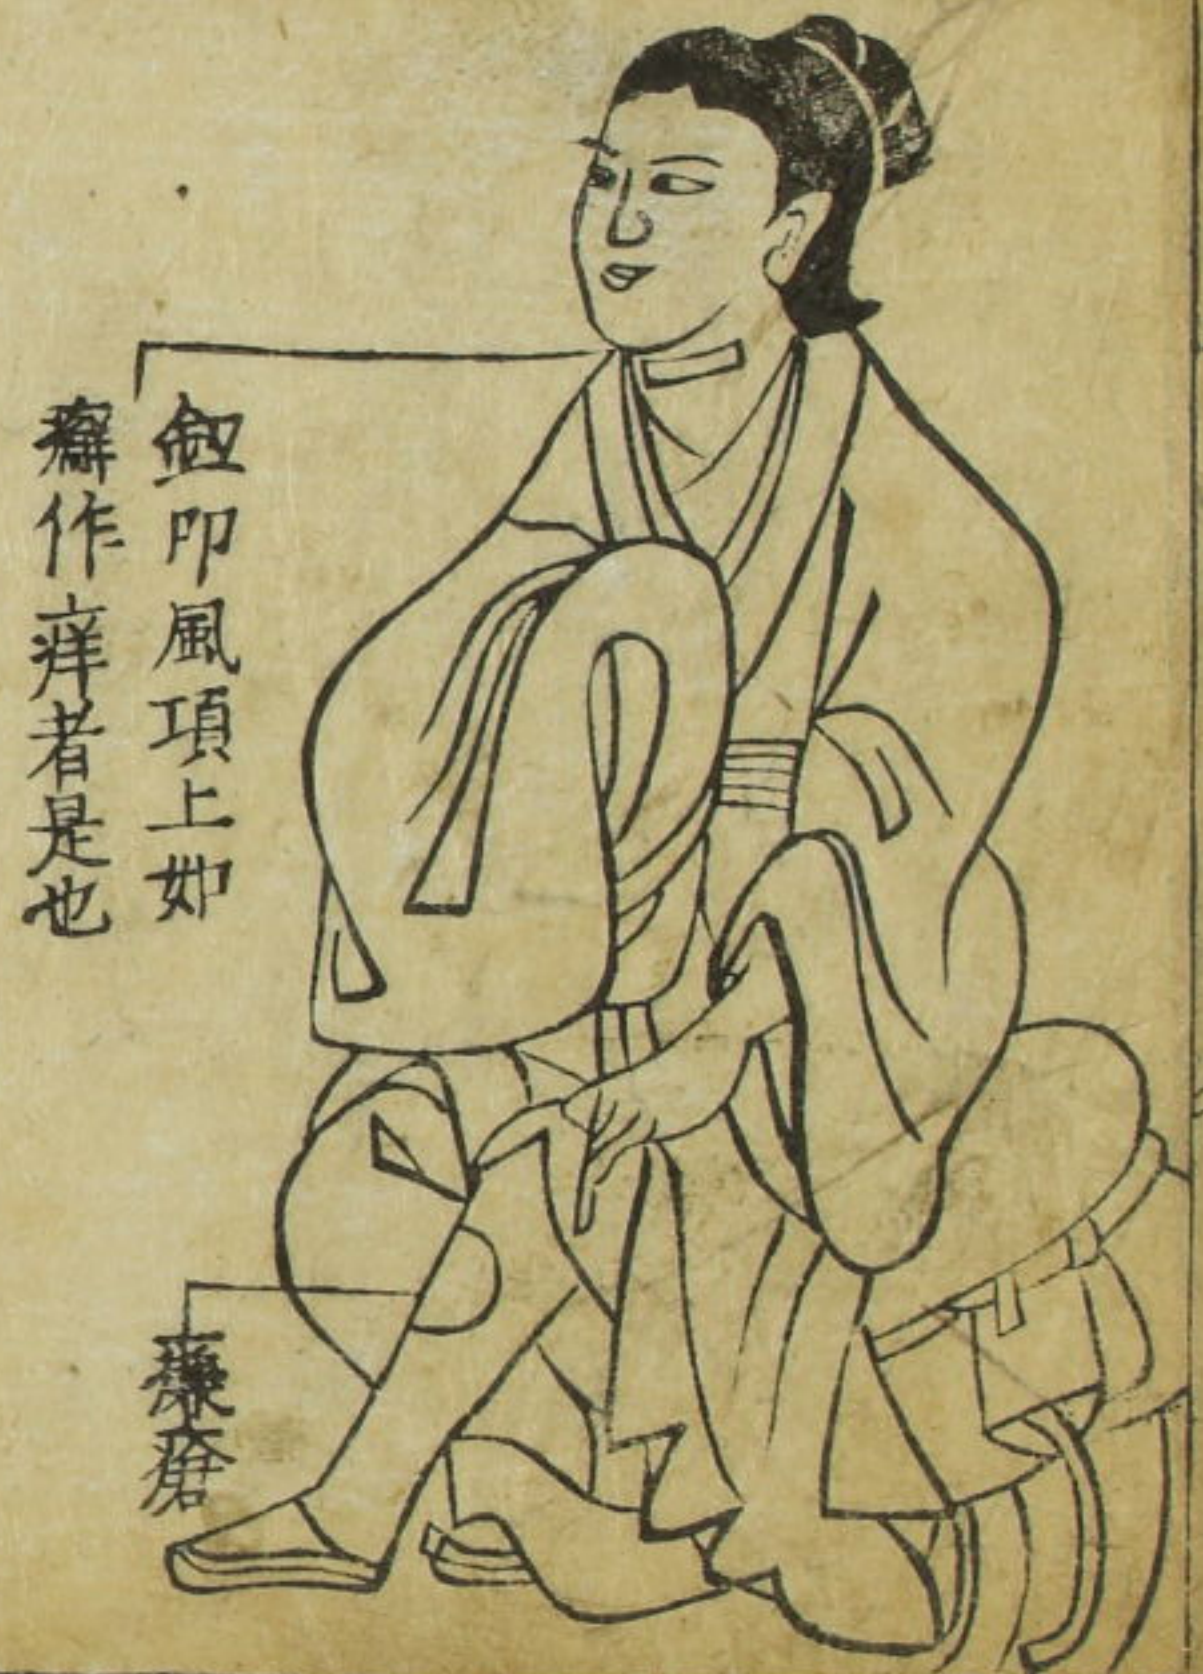 鈕叩風項上如
癬作痒者是也
㾾瘡